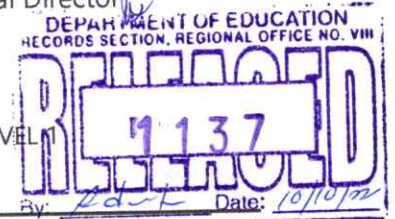 al Director
DEPARTMENT OF EDUCATION
RECORDS SECTION, REGIONAL OFFICE NO. VIII
RELEASED
VEL 1
1137
By: Date: 10/10/22